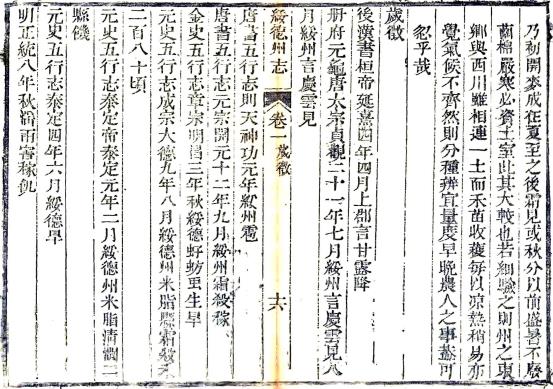 乃初開麥成在夏至之後霜見或秋分以前盛暑不廢
蘭棉嚴寒必資土室此其大較也若細驗之則州之東
鄉與西川雖相連一土而禾苗收穫每以凉熱稍易亦
覺氣候不齊然則分種辨宜量度早晚農人之事葢可
忽乎哉
歲徵
後漢書桓帝延熹四年四月上郡言甘露降
册府元龜唐太宗貞觀二十一年七月綏州言慶雲見八
月綏州言慶雲見
綏德州志
卷一
歲徵
十六
唐書五行志則天神功元年綏州雹
唐書五行志元宗開元十二年九月綏州霜殺稼
金史五行志章宗明昌三年秋綏德虸蚄蟲生旱
元史五行志成宗大德九年八月綏德州米脂縣霜殺禾
二百八十頃
元史五行志泰定帝泰定元年二月綏德州米脂清澗二
縣饑
元史五行志泰定四年六月綏德旱
明正統八年秋霜雨害稼飢